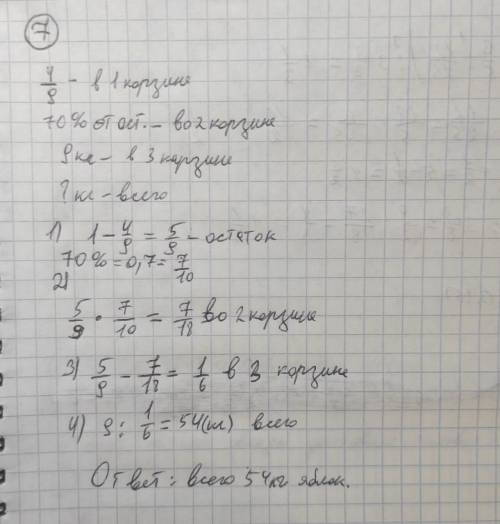 7
4/9 - в 1 корзине
70% от ост. - во 2 корзине
9 кг - в 3 корзине
? кг - всего
1) 1 - 4/9 = 5/9 - остаток
70% = 0,7 = 7/10
2)
5/9 · 7/10 = 7/18 во 2 корзине
3) 5/9 - 7/18 = 1/6 в 3 корзине
4) 9 : 1/6 = 54 (кг) всего
Ответ: всего 54 кг яблок.